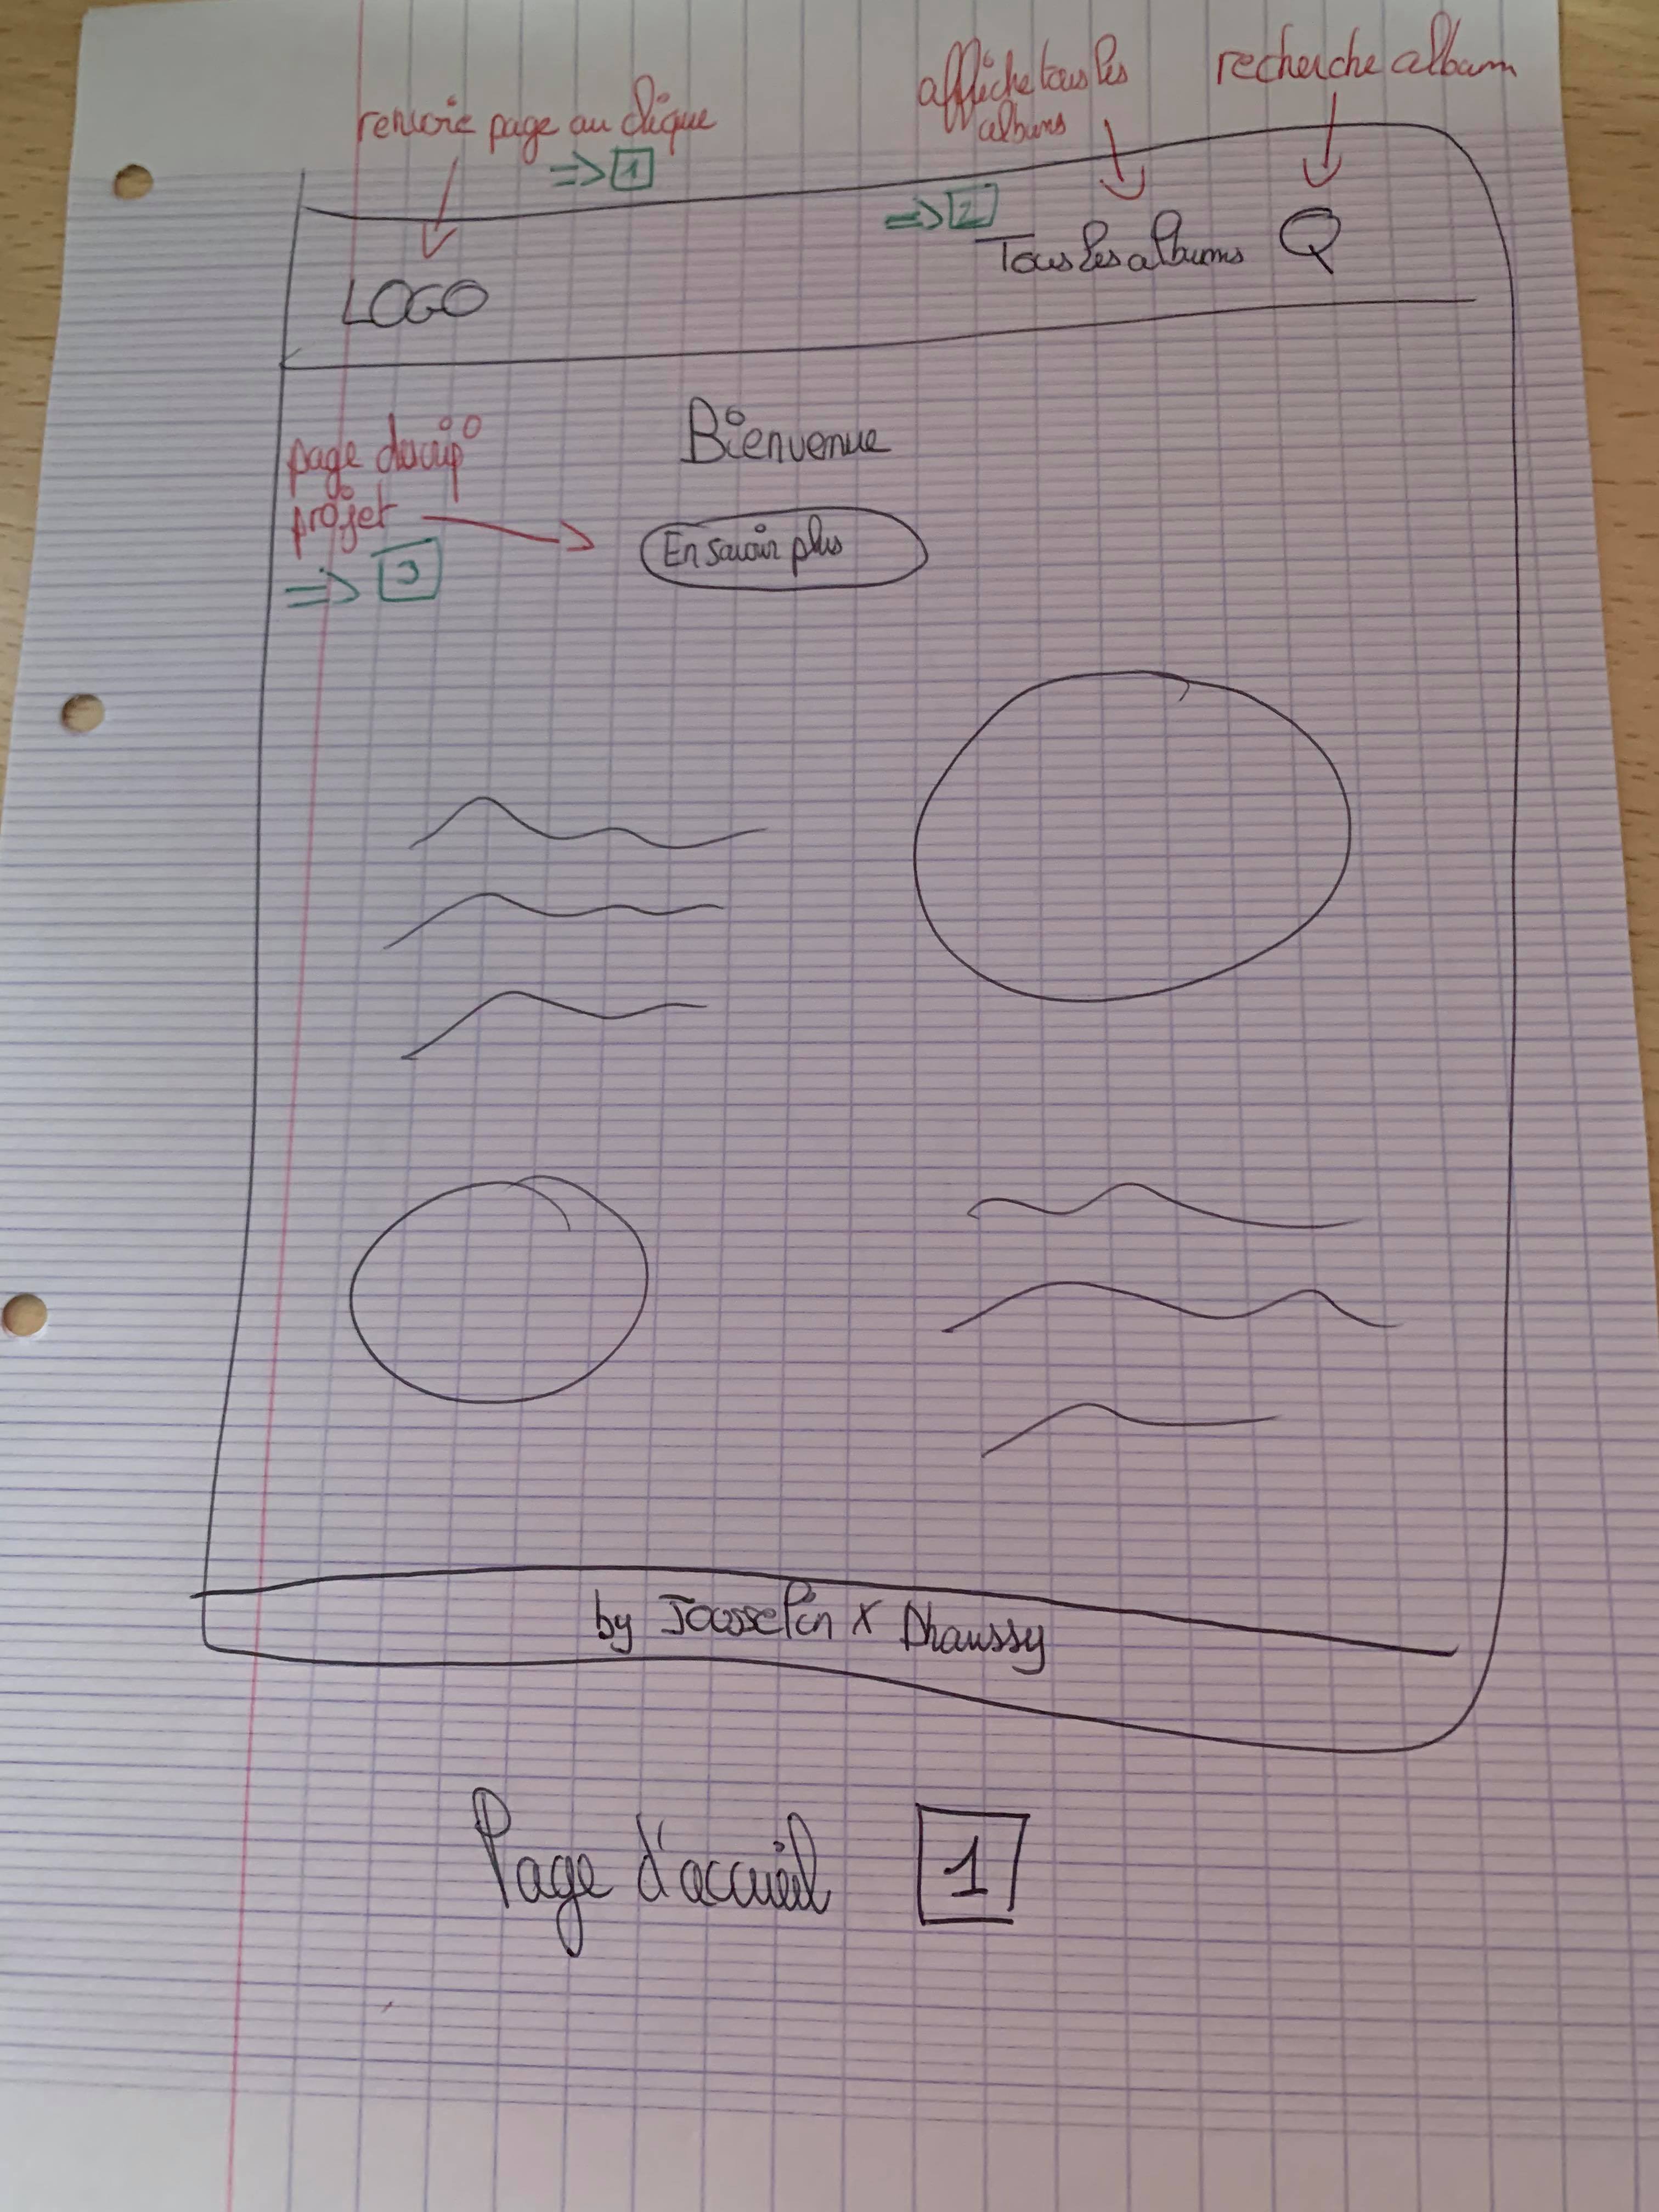 renvoie page au clique
=> 1
affiche tous les
albums
recherche album
=> 2
LOGO
Tous les albums
Bienvenue
page descrip°
projet
=> 3
En savoir plus
by Josselin X Dhaussy
Page d'accueil 1